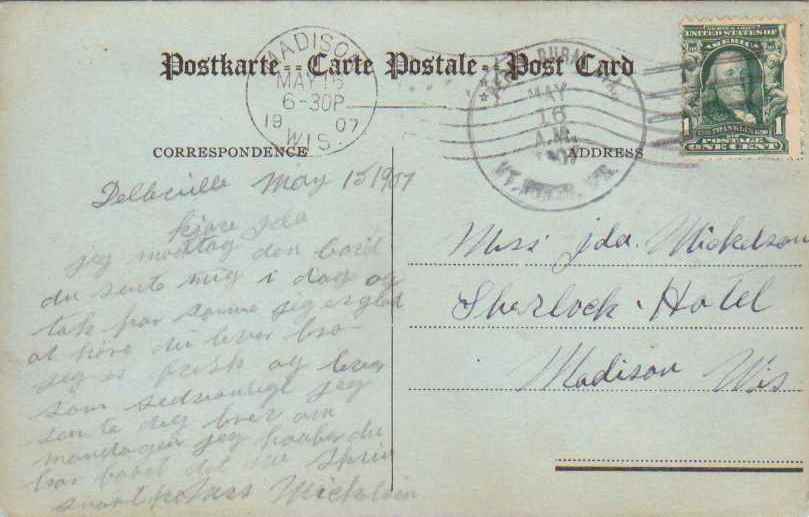 Postkarte -- Carte Postale -- Post Card
MADISON
MAY 15
6-30P
19 07
WIS.
MAY
16
A.M.
UNITED STATES OF
AMERICA
1 FRANKLIN 1
POSTAGE
ONE CENT
CORRESPONDENCE
ADDRESS
Belleville May 15 1907
kjære Ida
jeg modtog den
du sente mig i dag og
tak for samme jeg er glad
at høre du lever bra
jeg er frisk og lever
som sedvanligt jeg
sente dig brev om
mandagen jeg haaber du
har
snart
Miss Ida. Mickelson
Sherlock Hotel
Madison Wis